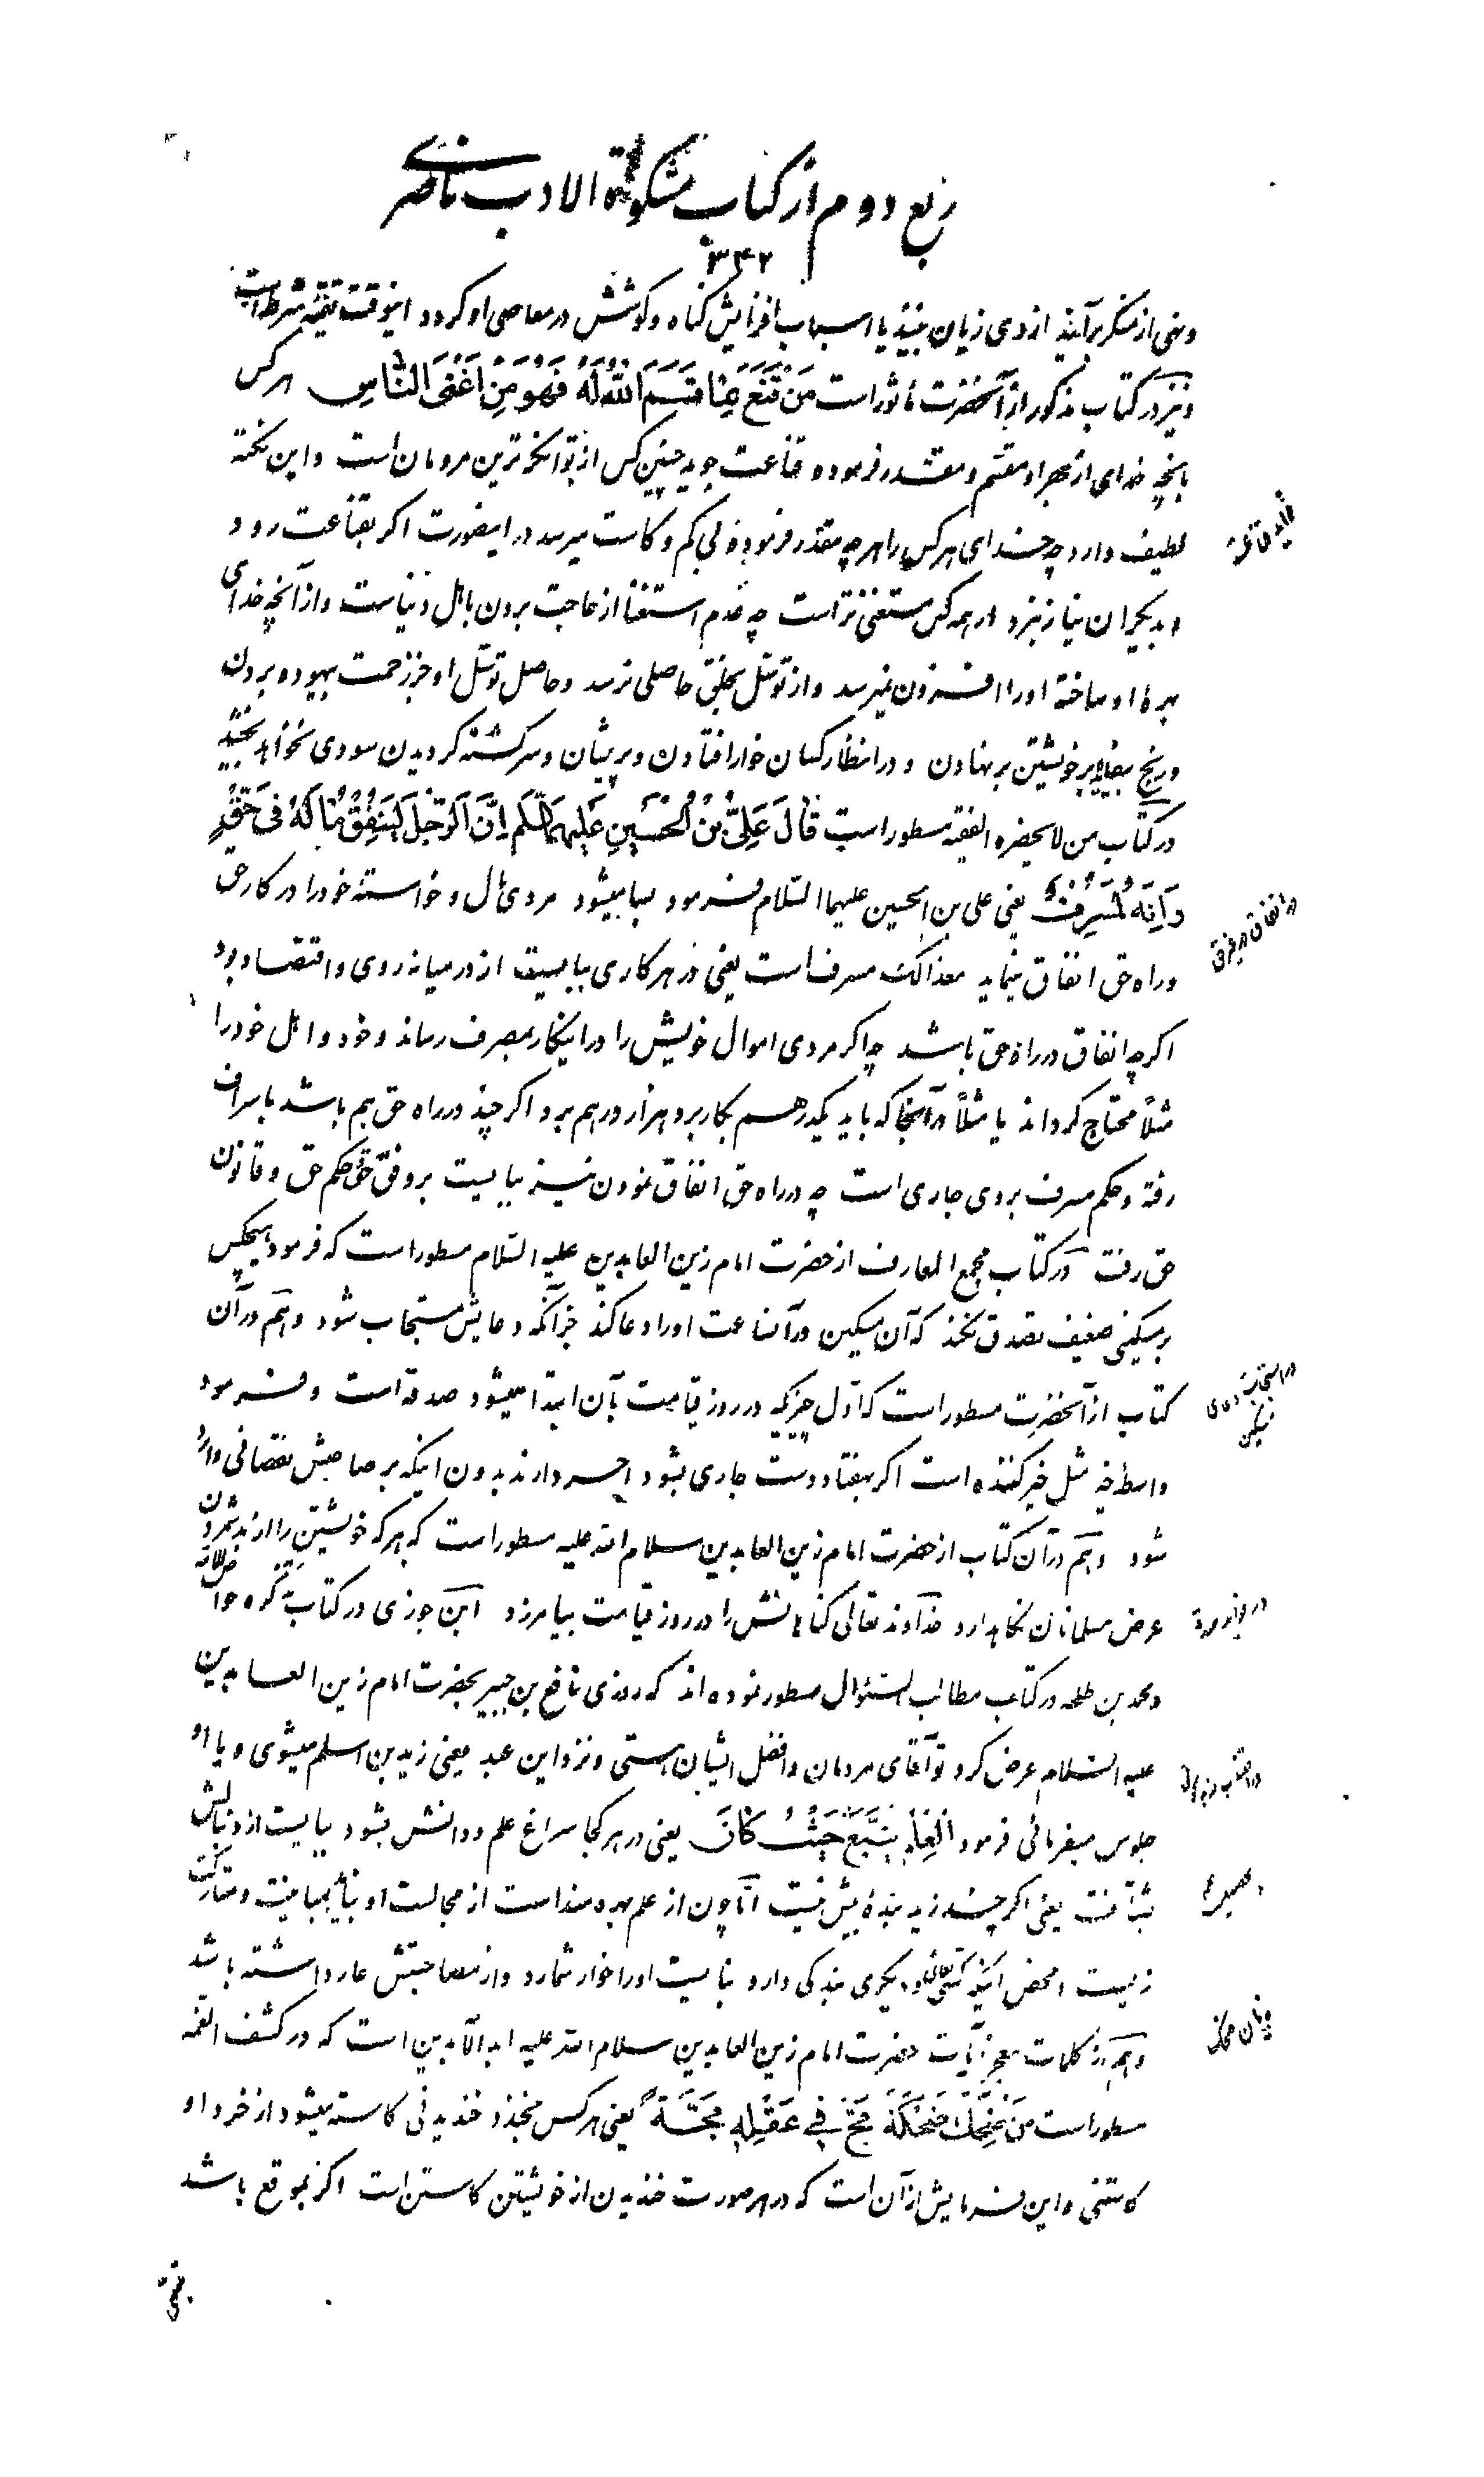 ربع دوم از کتاب مشکوة الادب ناصری
۳۴۲
ونهی از منکر برآیند از وی زیان بینند یا اسباب افزایش گناه و کوشش در معاصی او گردد اینوقت تقیه شرط است
و نیز در کتاب مذکور از آنحضرت مأثور است مَنْ قَنَعَ بِمٰا قَسَمَ اللّٰهُ لَهُ فَهُوَ مِنْ اَغْنَی النّٰاسِ هر کس
بآنچه خدای از بهر او مقسم و مقدر فرموده قناعت جوید چنین کس از توانگرترین مردمان است و این نکته
لطیف دارد چه خدای هر کس را هر چه مقدر فرموده بی کم و کاست میرسد در اینصورت اگر بقناعت رود
و بدیگران نیاز نبرد از همه کس مستغنی تر است چه عدم استغنا از حاجت بردن باهل دنیاست و از آنچه خدای
بهرهٔ او ساخته او را افزون نمیرسد و از توسل بخلق حاصلی نرسد و حاصل توسل او جز زحمت بیهوده بردن
و رنج بیفایده بر خویشتن بر نهادن و در انظار کسان خوار افتادن و پریشان و سرگشته گردیدن سودی نخواهد بخشید
در کتاب من لا یحضره الفقیه مسطور است قٰالَ عَلِیُّ بْنُ الْحُسَیْنِ عَلَیْهِمَا السَّلٰم اِنَّ الرَّجُلَ لَیُنْفِقُ مٰالَهُ فی حَقٍّ
وَاِنَّهُ لَمُسْرِفٌ یعنی علی بن الحسین علیهما السّلام فرمود بسا میشود مردی مال و خواستهٔ خود را در کار حق
و راه حق انفاق مینماید معذالک مسرف است یعنی در هر کاری ببایست از در میانه روی و اقتصاد بود
اگرچه انفاق در راه حق باشد چه اگر مردی اموال خویش را در اینکار بمصرف رساند و خود و اهل خود را
مثلاً محتاج گرداند یا مثلاً در آنجا که باید یکدرهم بکار برد هزار درهم برد اگر چند در راه حق هم باشد باسراف
رفته و حکم مسرف بروی جاری است چه در راه حق انفاق نمودن نیز ببایست بر وفق حق و حکم حق و قانون
حق رفت در کتاب مجمع المعارف از حضرت امام زین العابدین علیه السّلام مسطور است که فرمود هیچکس
بر مسکینی ضعیف تصدق نکند که آن مسکین در آنساعت او را دعا کند جز آنکه دعایش مستجاب شود و هم در آن
کتاب از آنحضرت مسطور است که اول چیزیکه در روز قیامت بآن ابتدا میشود صدقه است و فرمود
واسطه خیر مثل خیر کننده است اگر بهفتاد دست جاری بشود اجر دارند بدون اینکه بر صاحبش نقصانی وارد
شود و هم در آن کتاب از حضرت امام زین العابدین سلام الله علیه مسطور است که هر که خویشتن را از بد شمردن
عرض مسلمانان نگاهدارد خداوند تعالی گناهانش را در روز قیامت بیامرزد ابن جوزی در کتاب تذکره خواص الائمة
و محمد بن طلحه در کتاب مطالب السئوال مسطور نموده اند که روزی نافع بن جبیر بحضرت امام زین العابدین
علیه السّلام عرض کرد تو آقای مردمان و افضل ایشان هستی و نزد این عبد یعنی زید بن اسلم میشوی و با او
جلوس میفرمائی فرمود اَلْعِلْمُ یُتَّبَعُ حَیْثُ کٰانَ یعنی در هر کجا سراغ علم و دانش بشود ببایست از دنبالش
شتافت یعنی اگر چند زید بندهٔ بیش نیست امّا چون از علم بهره مند است از مجالست او نباید بمباینت و متارکت
زیست و محض اینکه دیگری بندگی دارد نبایست او را خوار شمارد و از مصاحبتش عار داشته باشد
و هم از کلمات معجز آیات حضرت امام زین العابدین سلام الله علیه ابد الآبدین است که در کشف الغمه
مسطور است مَنْ ضَحِکَ ضَحْکَةً مَجَّ فی عَقْلِهِ مَجَّةً یعنی هر کس بخندد خندیدنی کاسته میشود از خرد او
کاستنی و این فرمایش از آن است که در هر صورت خندیدن از خویشتن کاستن است اگر بموقع باشد
در انفاق
در استجابت دعای
مسکین